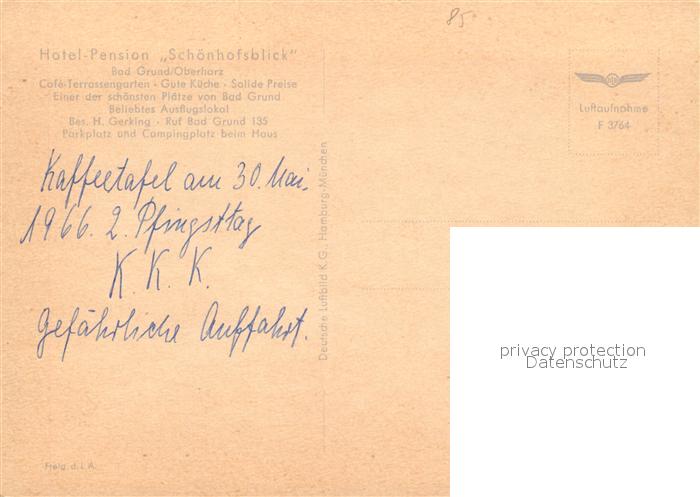 85
Hotel-Pension „Schönhofsblick"
Bad Grund/Oberharz
Café-Terrassengarten · Gute Küche · Solide Preise
Einer der schönsten Plätze von Bad Grund
Beliebtes Ausflugslokal
Bes. H. Gerking · Ruf Bad Grund 135
Parkplatz und Campingplatz beim Haus
Kaffeetafel am 30. Mai.
1966. 2. Pfingsttag
K. K. K.
Gefährliche Auffahrt.
Freig. d. L. A.
Deutsche Luftbild K.G., Hamburg-München
Luftaufnahme
F 3764
privacy protection
Datenschutz